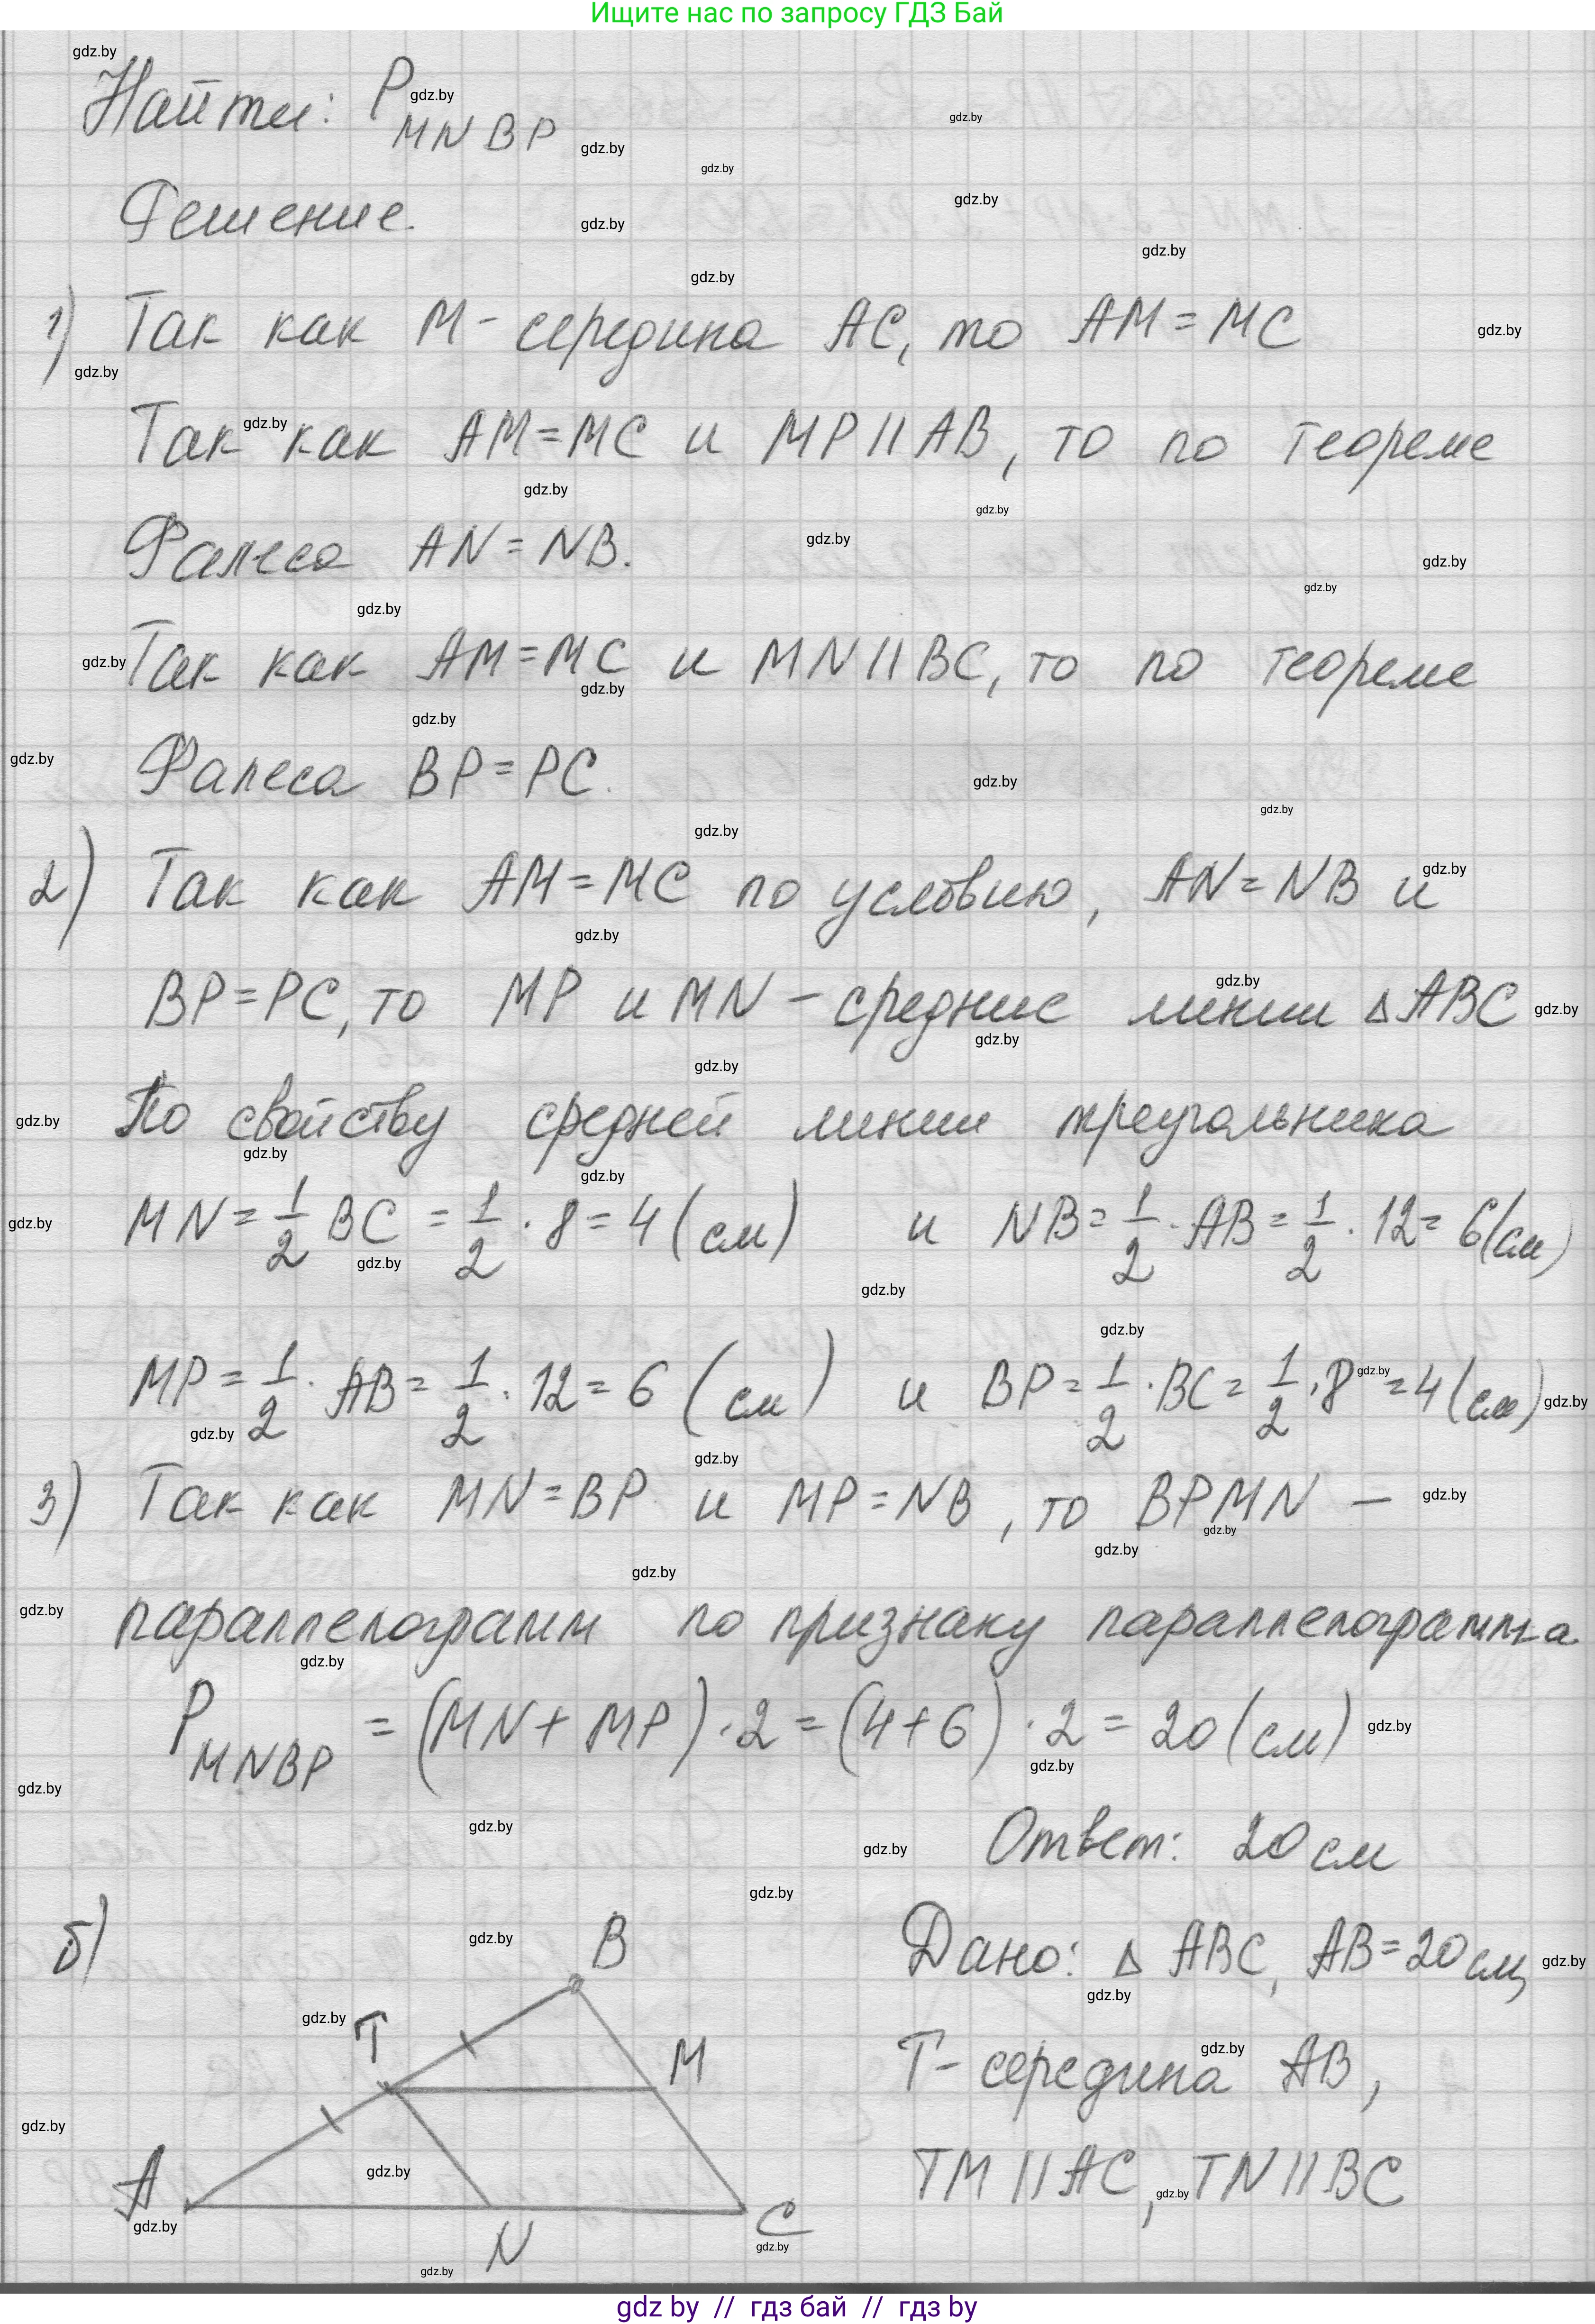 Ищите нас по запросу ГДЗ Бай
Найти: P MNBP
Решение.
1) Так как M - середина AC, то AM = MC
Так как AM = MC и MP || AB, то по теореме
Фалеса AN = NB.
Так как AM = MC и MN || BC, то по теореме
Фалеса BP = PC.
2) Так как AM = MC по условию, AN = NB и
BP = PC, то MP и MN - средние линии ΔABC
По свойству средней линии треугольника
MN = 1/2 BC = 1/2 · 8 = 4 (см) и NB = 1/2 · AB = 1/2 · 12 = 6 (см)
MP = 1/2 · AB = 1/2 · 12 = 6 (см) и BP = 1/2 · BC = 1/2 · 8 = 4 (см)
3) Так как MN = BP и MP = NB, то BPMN —
параллелограмм по признаку параллелограмма
P MNBP = (MN + MP) · 2 = (4 + 6) · 2 = 20 (см)
Ответ: 20 см
б)
B
T
M
A
N
C
Дано: Δ ABC, AB = 20 см,
T - середина AB,
TM || AC, TN || BC
gdz by // гдз бай // гдз by